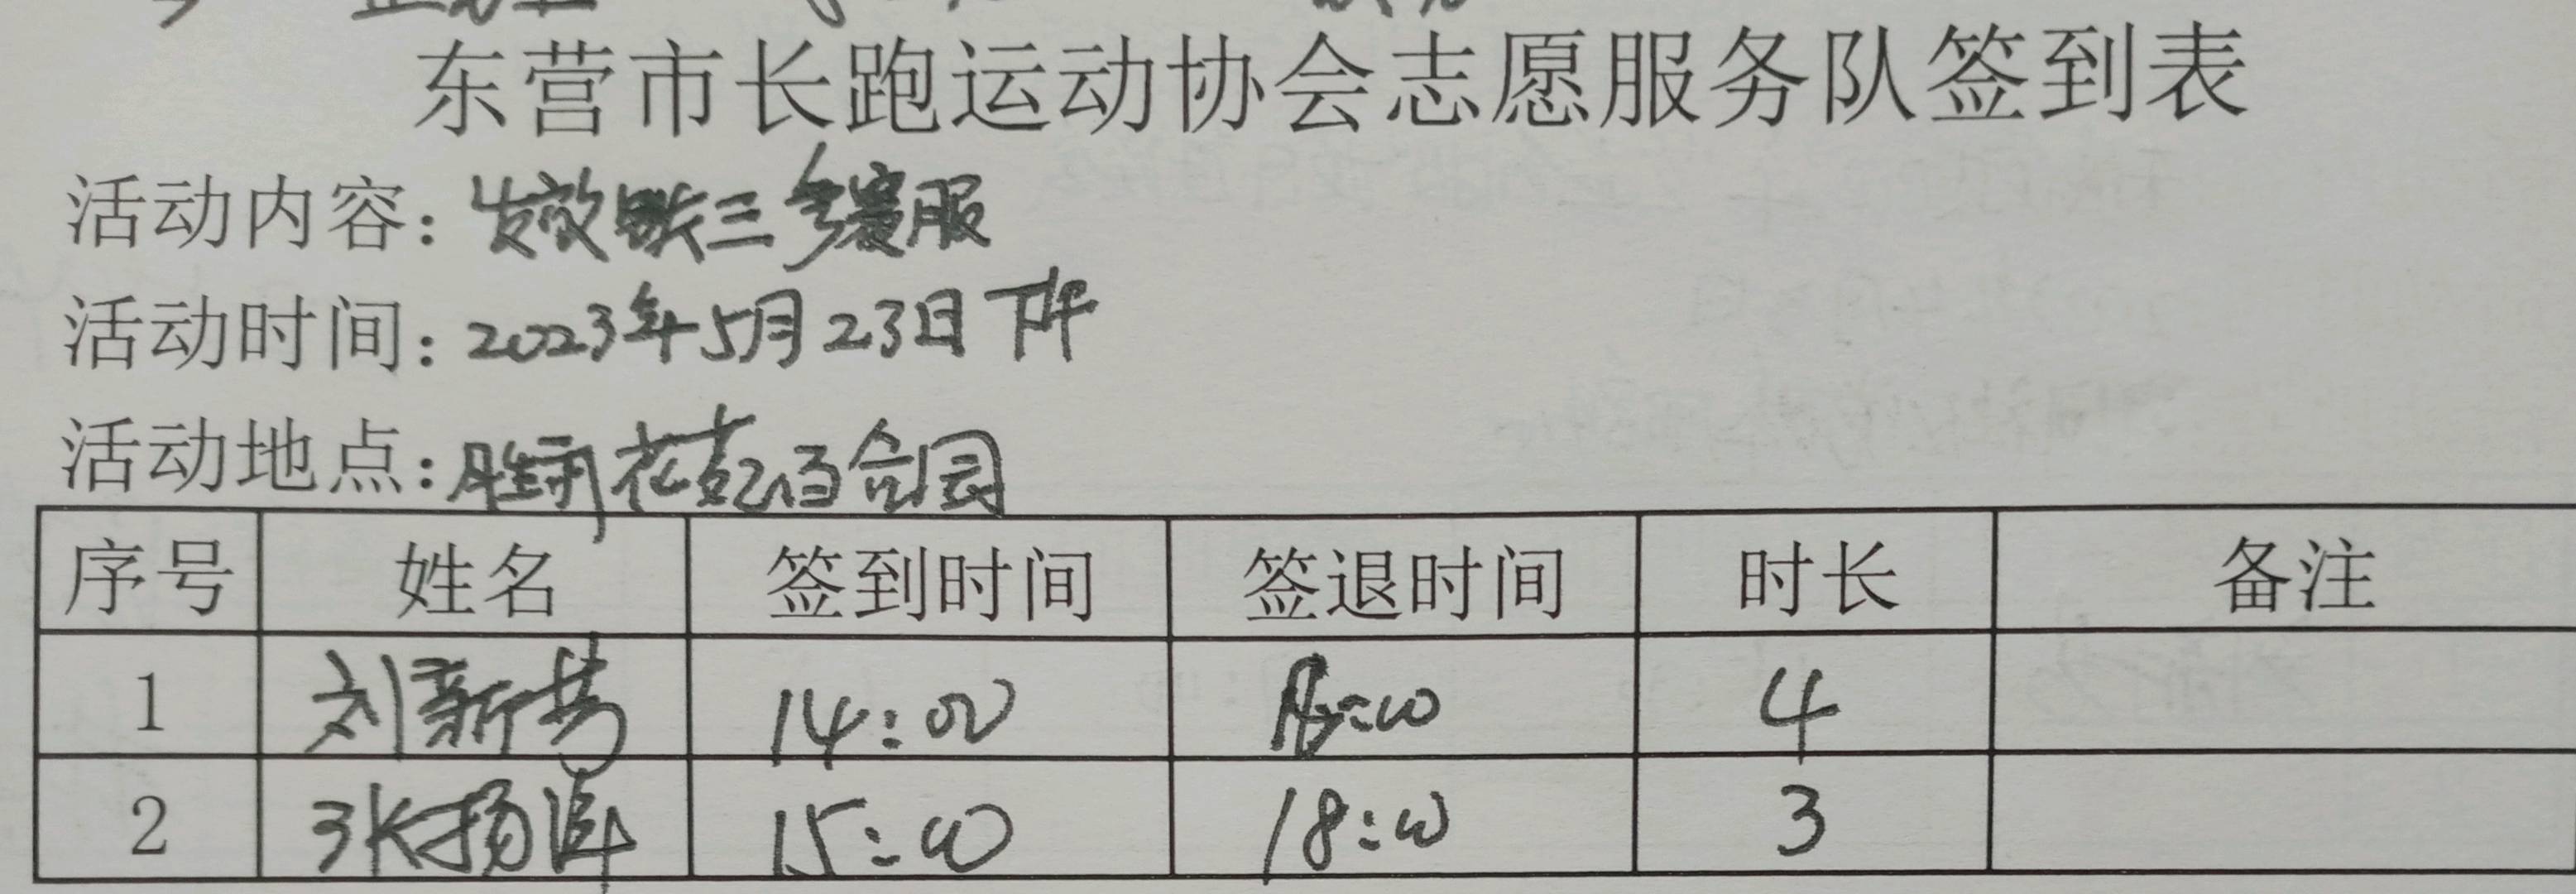 东营市长跑运动协会志愿服务队签到表
活动内容: 发放 铁三参赛服
活动时间: 2023年5月23日下午
活动地点: 胜利花苑百合园
序号 姓名 签到时间 签退时间 时长 备注
1 刘新芳 14:00 18:00 4
2 张扬 15:00 18:00 3